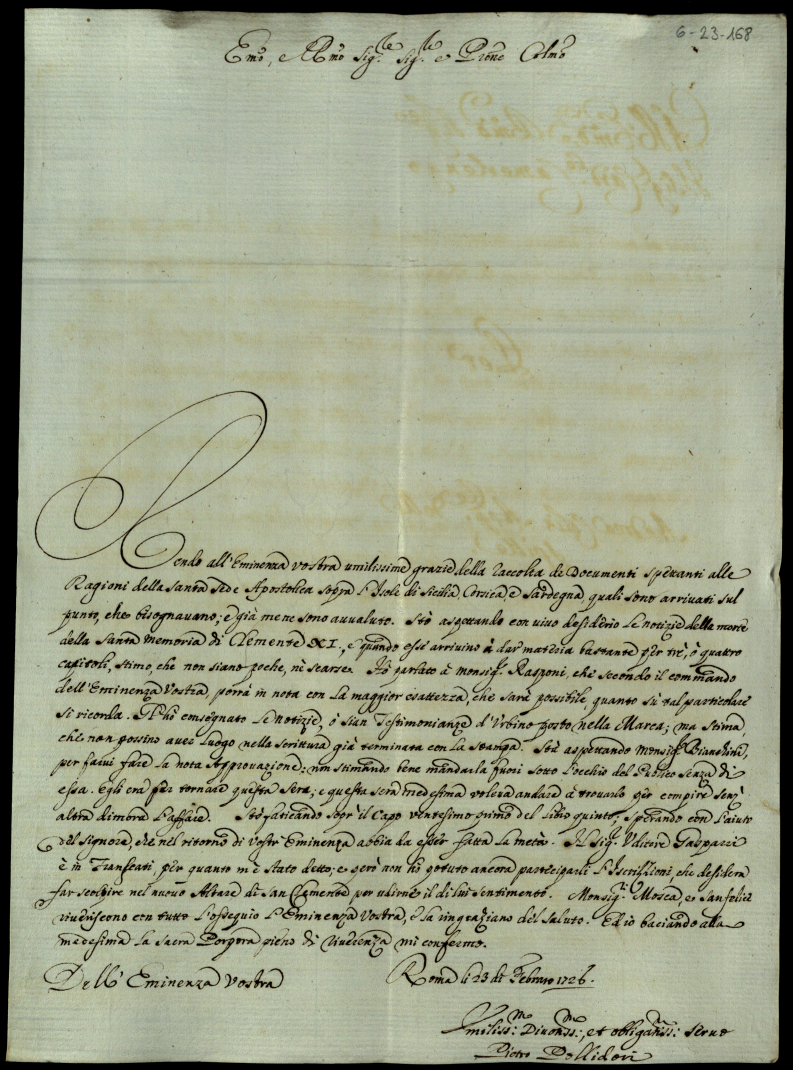 6-23-168
Emo, e Rmo Sig.re Sig.re e Prone Colmo
Rendo all'Eminenza vostra umilissime grazie della raccolta de Documenti spettanti alle
Ragioni della Santa Sede Apostolica sopra l'Isole di Sicilia, Corsica e Sardegna quali sono arrivati sul
punto, che bisognavano; e già me ne sono avvaluto. Stò aspettando con vivo desiderio le notizie della morte
della Santa Memoria di Clemente XI., e quando esse arrivino à dar materia bastante per trè, ò quattro
capitoli, stimo, che non siano poche, nè scarse. Hò parlato à Monsig.r Rasponi, che secondo il commando
dell'Eminenza Vostra, porrà in nota con la maggior esattezza, che sarà possibile, quanto sù tal particolare
si ricorda. Gl'hò consegnato le notizie, ò sian Testimonianze d'Urbino posto nella Marca; ma stima,
che non possino aver luogo nella scrittura già terminata con la stampa. Stò aspettando Monsig.r Bianchini,
per farvi fare la nota Approvazione: non stimando bene mandarla fuori sotto l'occhio del Publico senza di
essa. Egli era per tornare questa sera; e questa sera medesima volevo andare à trovarlo per compire senz'
altra dimora l'affare. Stò faticando sopra il Capo ventesimo primo del libro quinto, sperando con l'aiuto
del Signore, che nel ritorno di vostr'Eminenza abbia da esser fatta la metà. Il Sig.r Uditore Gasparri
è in Frascati, per quanto m'è stato detto; e però non hò potuto ancora participarli l'Iscrizzioni, che desidera
far scolpire nel nuovo Altare di San Clemente per udirne il di lui sentimento. Monsig.ri Mosca, e Sanfelice
riveriscono con tutto l'ossequio l'Eminenza Vostra, e la ringraziano del saluto. Ed io baciando alla
medesima la sacra Porpora pieno di riverenza mi confermo.
Dell'Eminenza Vostra Roma li 23 di Febraro 1726.
Umiliss:mo Divotiss:mo, et obligatiss:mo Servo
Pietro Pollidori